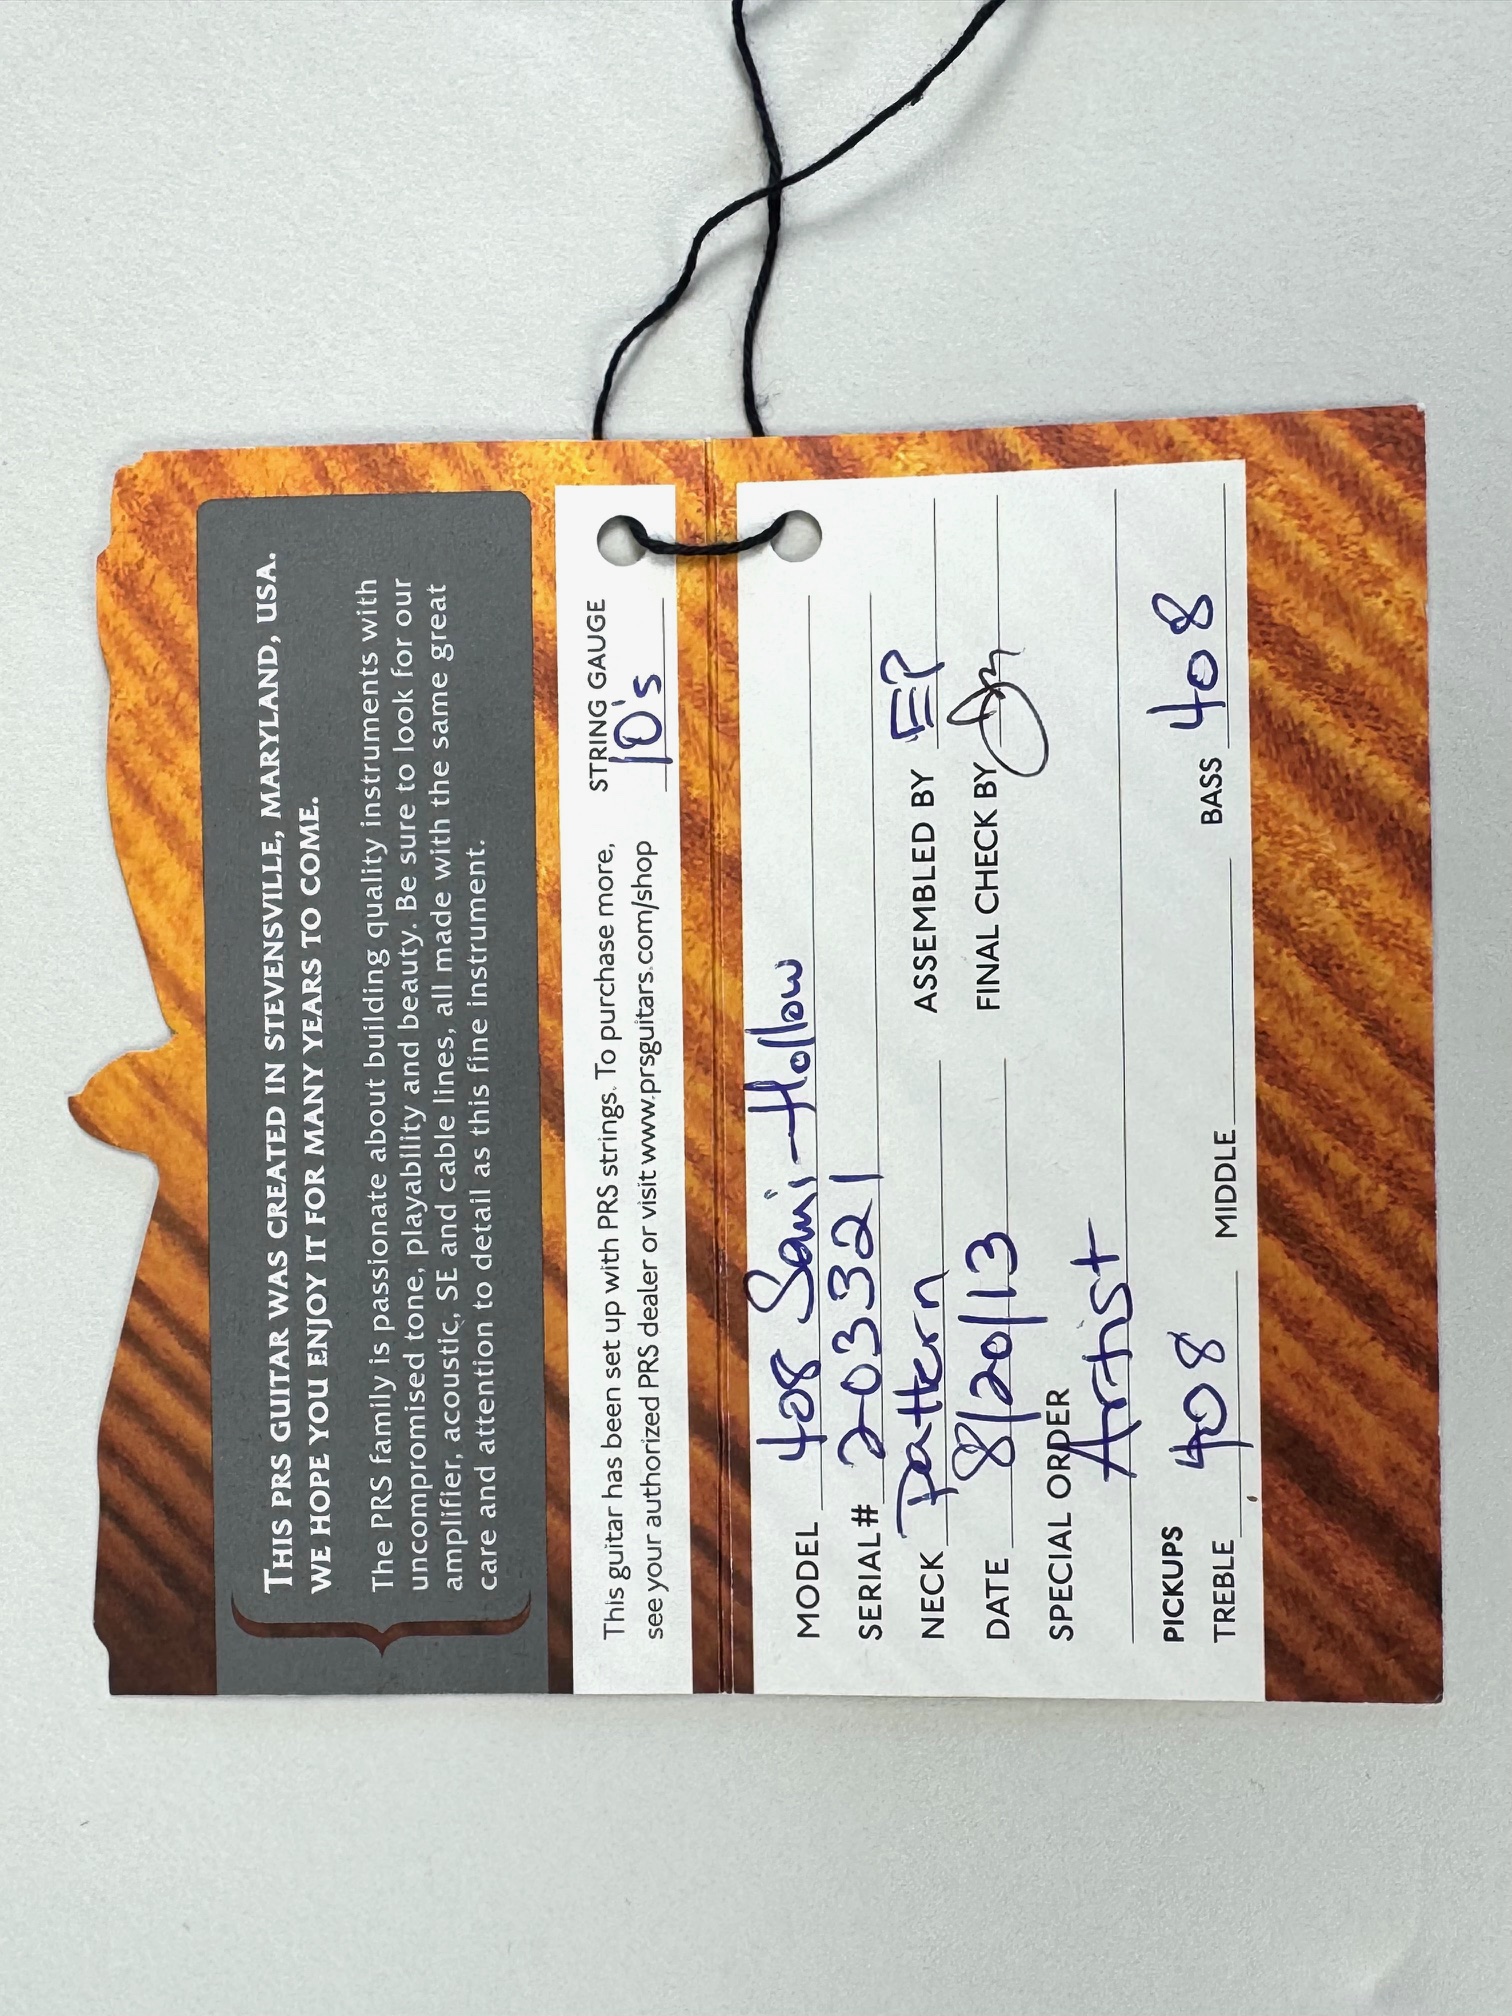 THIS PRS GUITAR WAS CREATED IN STEVENSVILLE, MARYLAND, USA.
WE HOPE YOU ENJOY IT FOR MANY YEARS TO COME.
The PRS family is passionate about building quality instruments with
uncompromised tone, playability and beauty. Be sure to look for our
amplifier, acoustic, SE and cable lines, all made with the same great
care and attention to detail as this fine instrument.
This guitar has been set up with PRS strings. To purchase more,
see your authorized PRS dealer or visit www.prsguitars.com/shop
STRING GAUGE
10's
MODEL 408 Semi-Hollow
SERIAL# 203321
NECK Pattern ASSEMBLED BY EP
DATE 8/20/13 FINAL CHECK BY
SPECIAL ORDER
Artist
PICKUPS
TREBLE 408 MIDDLE BASS 408